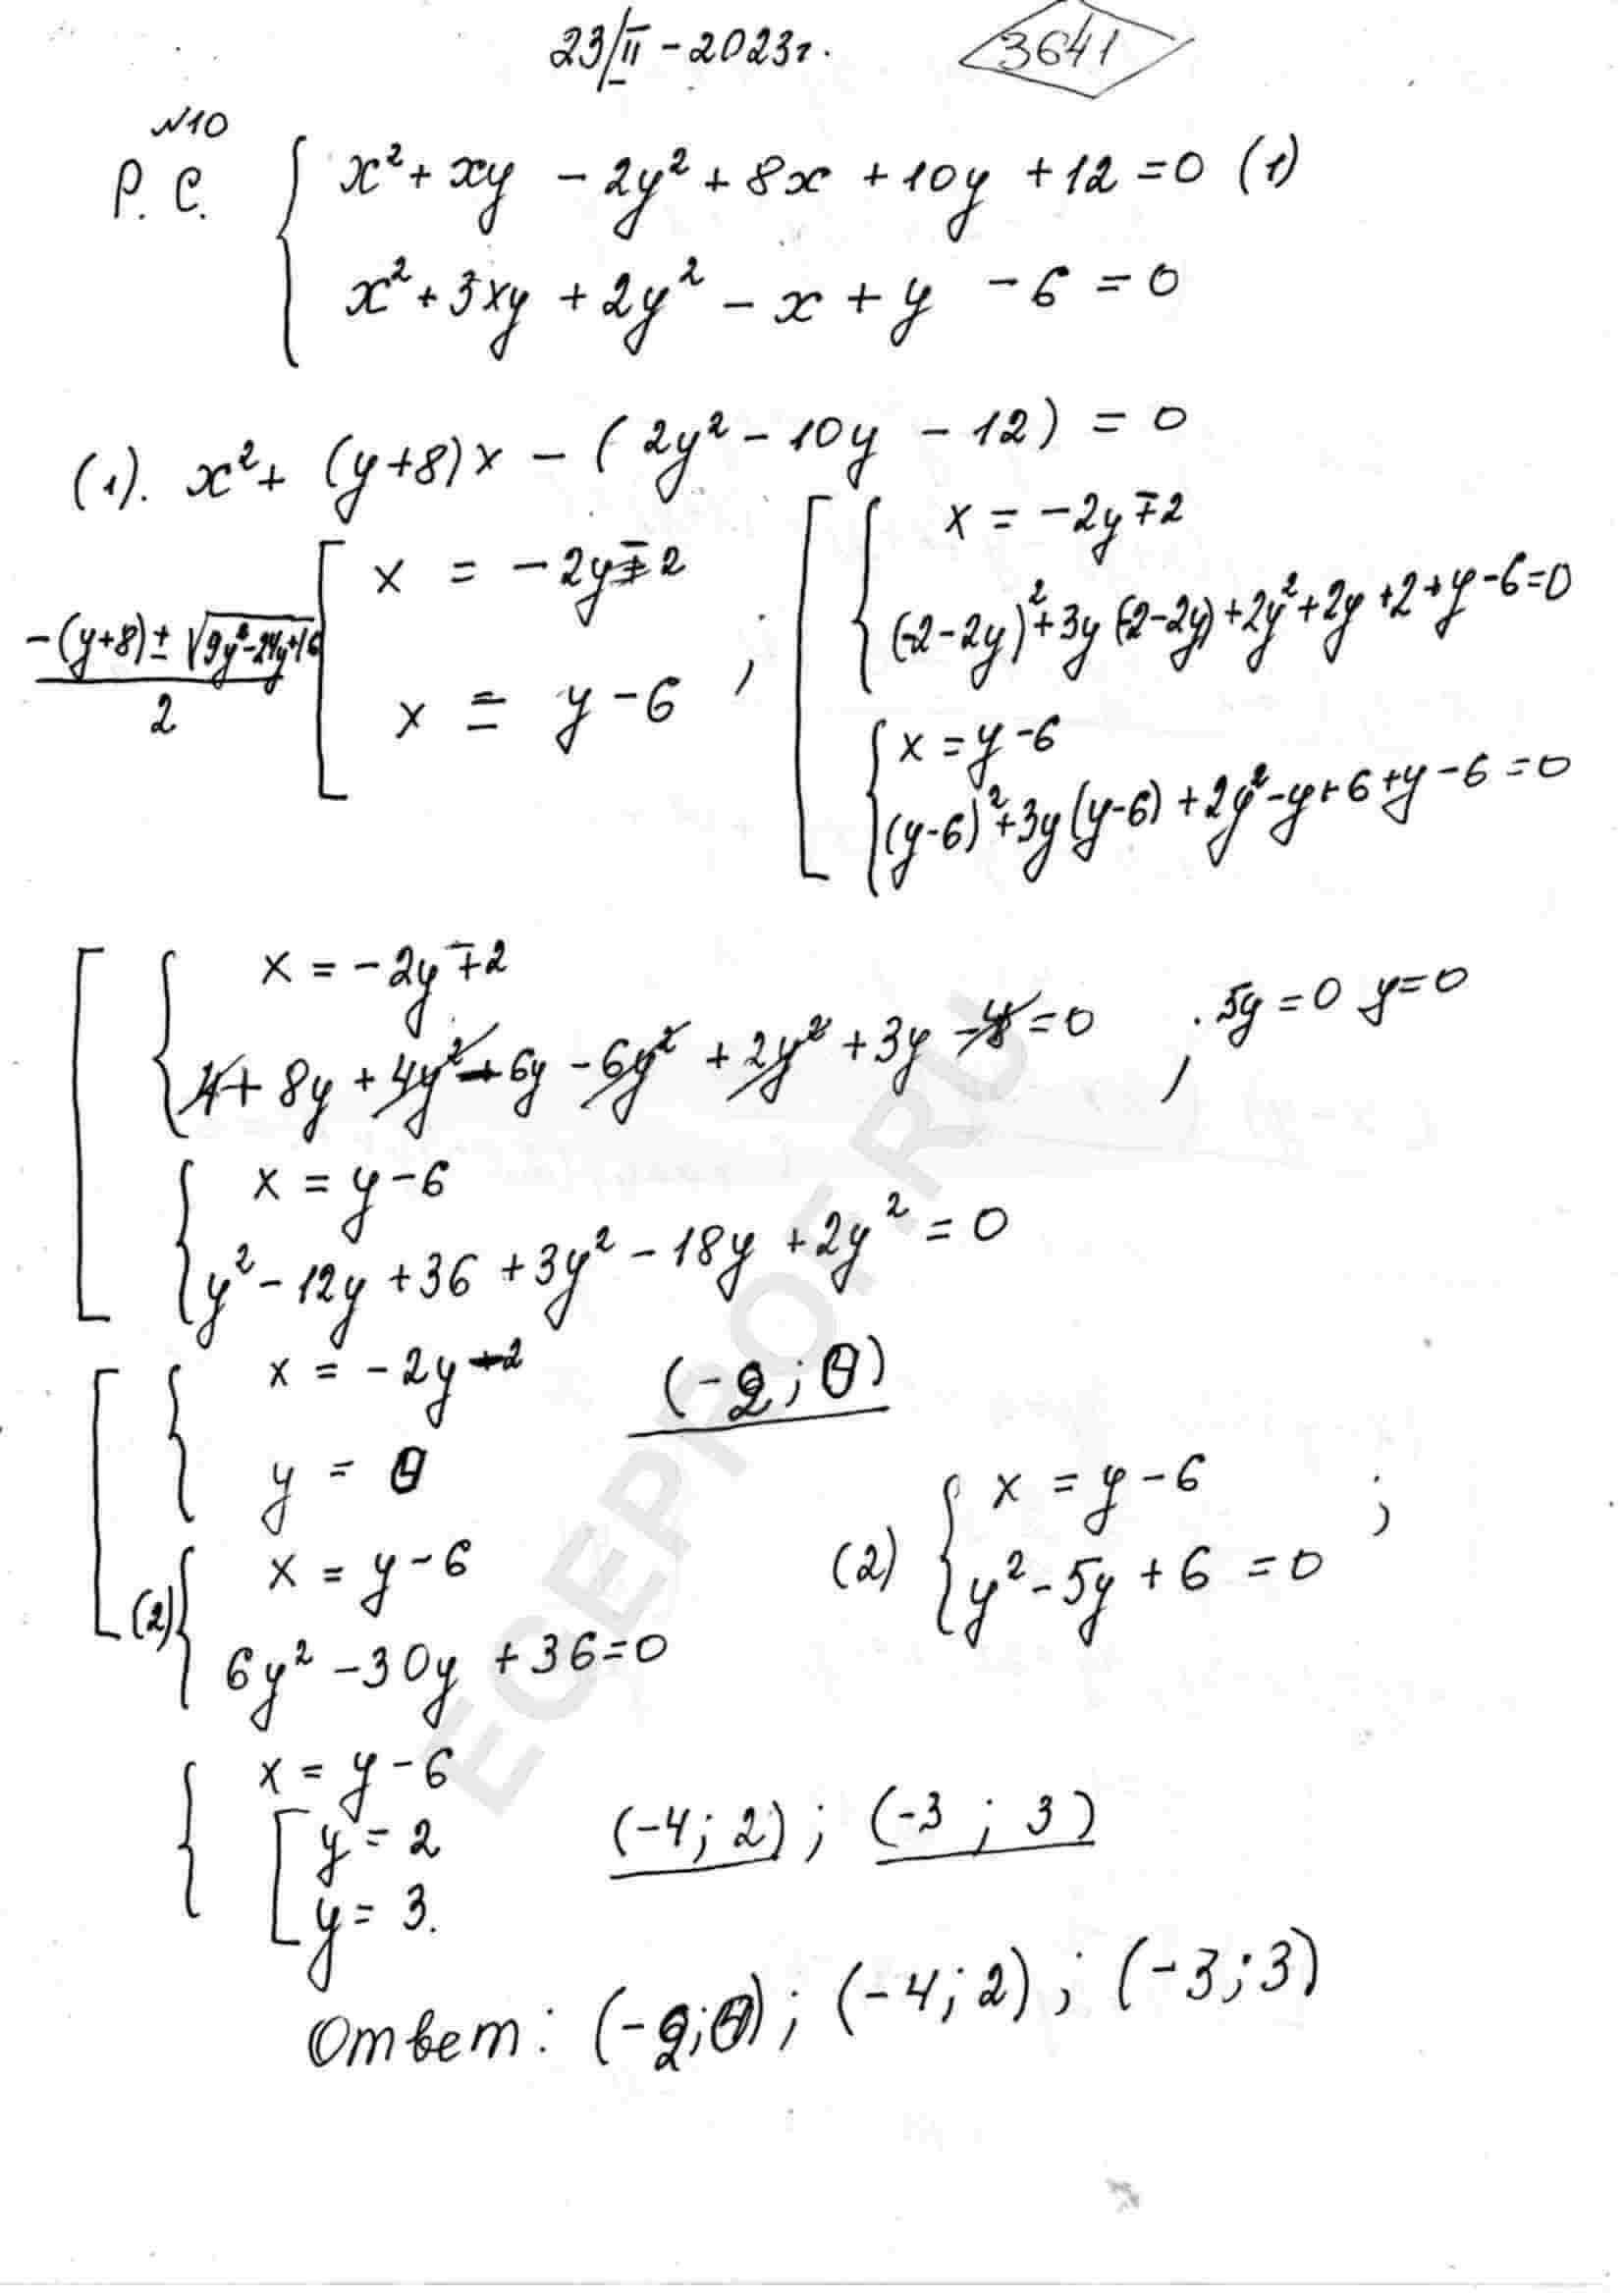 23/II - 2023г.
3641
N10
Р. С. { x² + xy - 2y² + 8x + 10y + 12 = 0 (1)
x² + 3xy + 2y² - x + y - 6 = 0
(1). x² + (y+8)x - (2y² - 10y - 12) = 0
x = -2y - 2
-(y+8) ± √9y²-24y+16
2
x = y - 6 ;
x = -2y - 2
(-2-2y)² + 3y(-2-2y) + 2y² + 2y + 2 + y - 6 = 0
x = y - 6
(y-6)² + 3y(y-6) + 2y² - y + 6 + y - 6 = 0
x = -2y - 2
4 + 8y + 4y² - 6y - 6y² + 2y² + 3y - 4 = 0 ; 5y = 0 y = 0
x = y - 6
y² - 12y + 36 + 3y² - 18y + 2y² = 0
x = -2y - 2 (-2; 0)
y = 0
(2) x = y - 6
6y² - 30y + 36 = 0
(2) { x = y - 6 ;
y² - 5y + 6 = 0
x = y - 6
y = 2 (-4; 2); (-3; 3)
y = 3.
Ответ: (-2; 0); (-4; 2); (-3; 3)
EGEPROF.RU